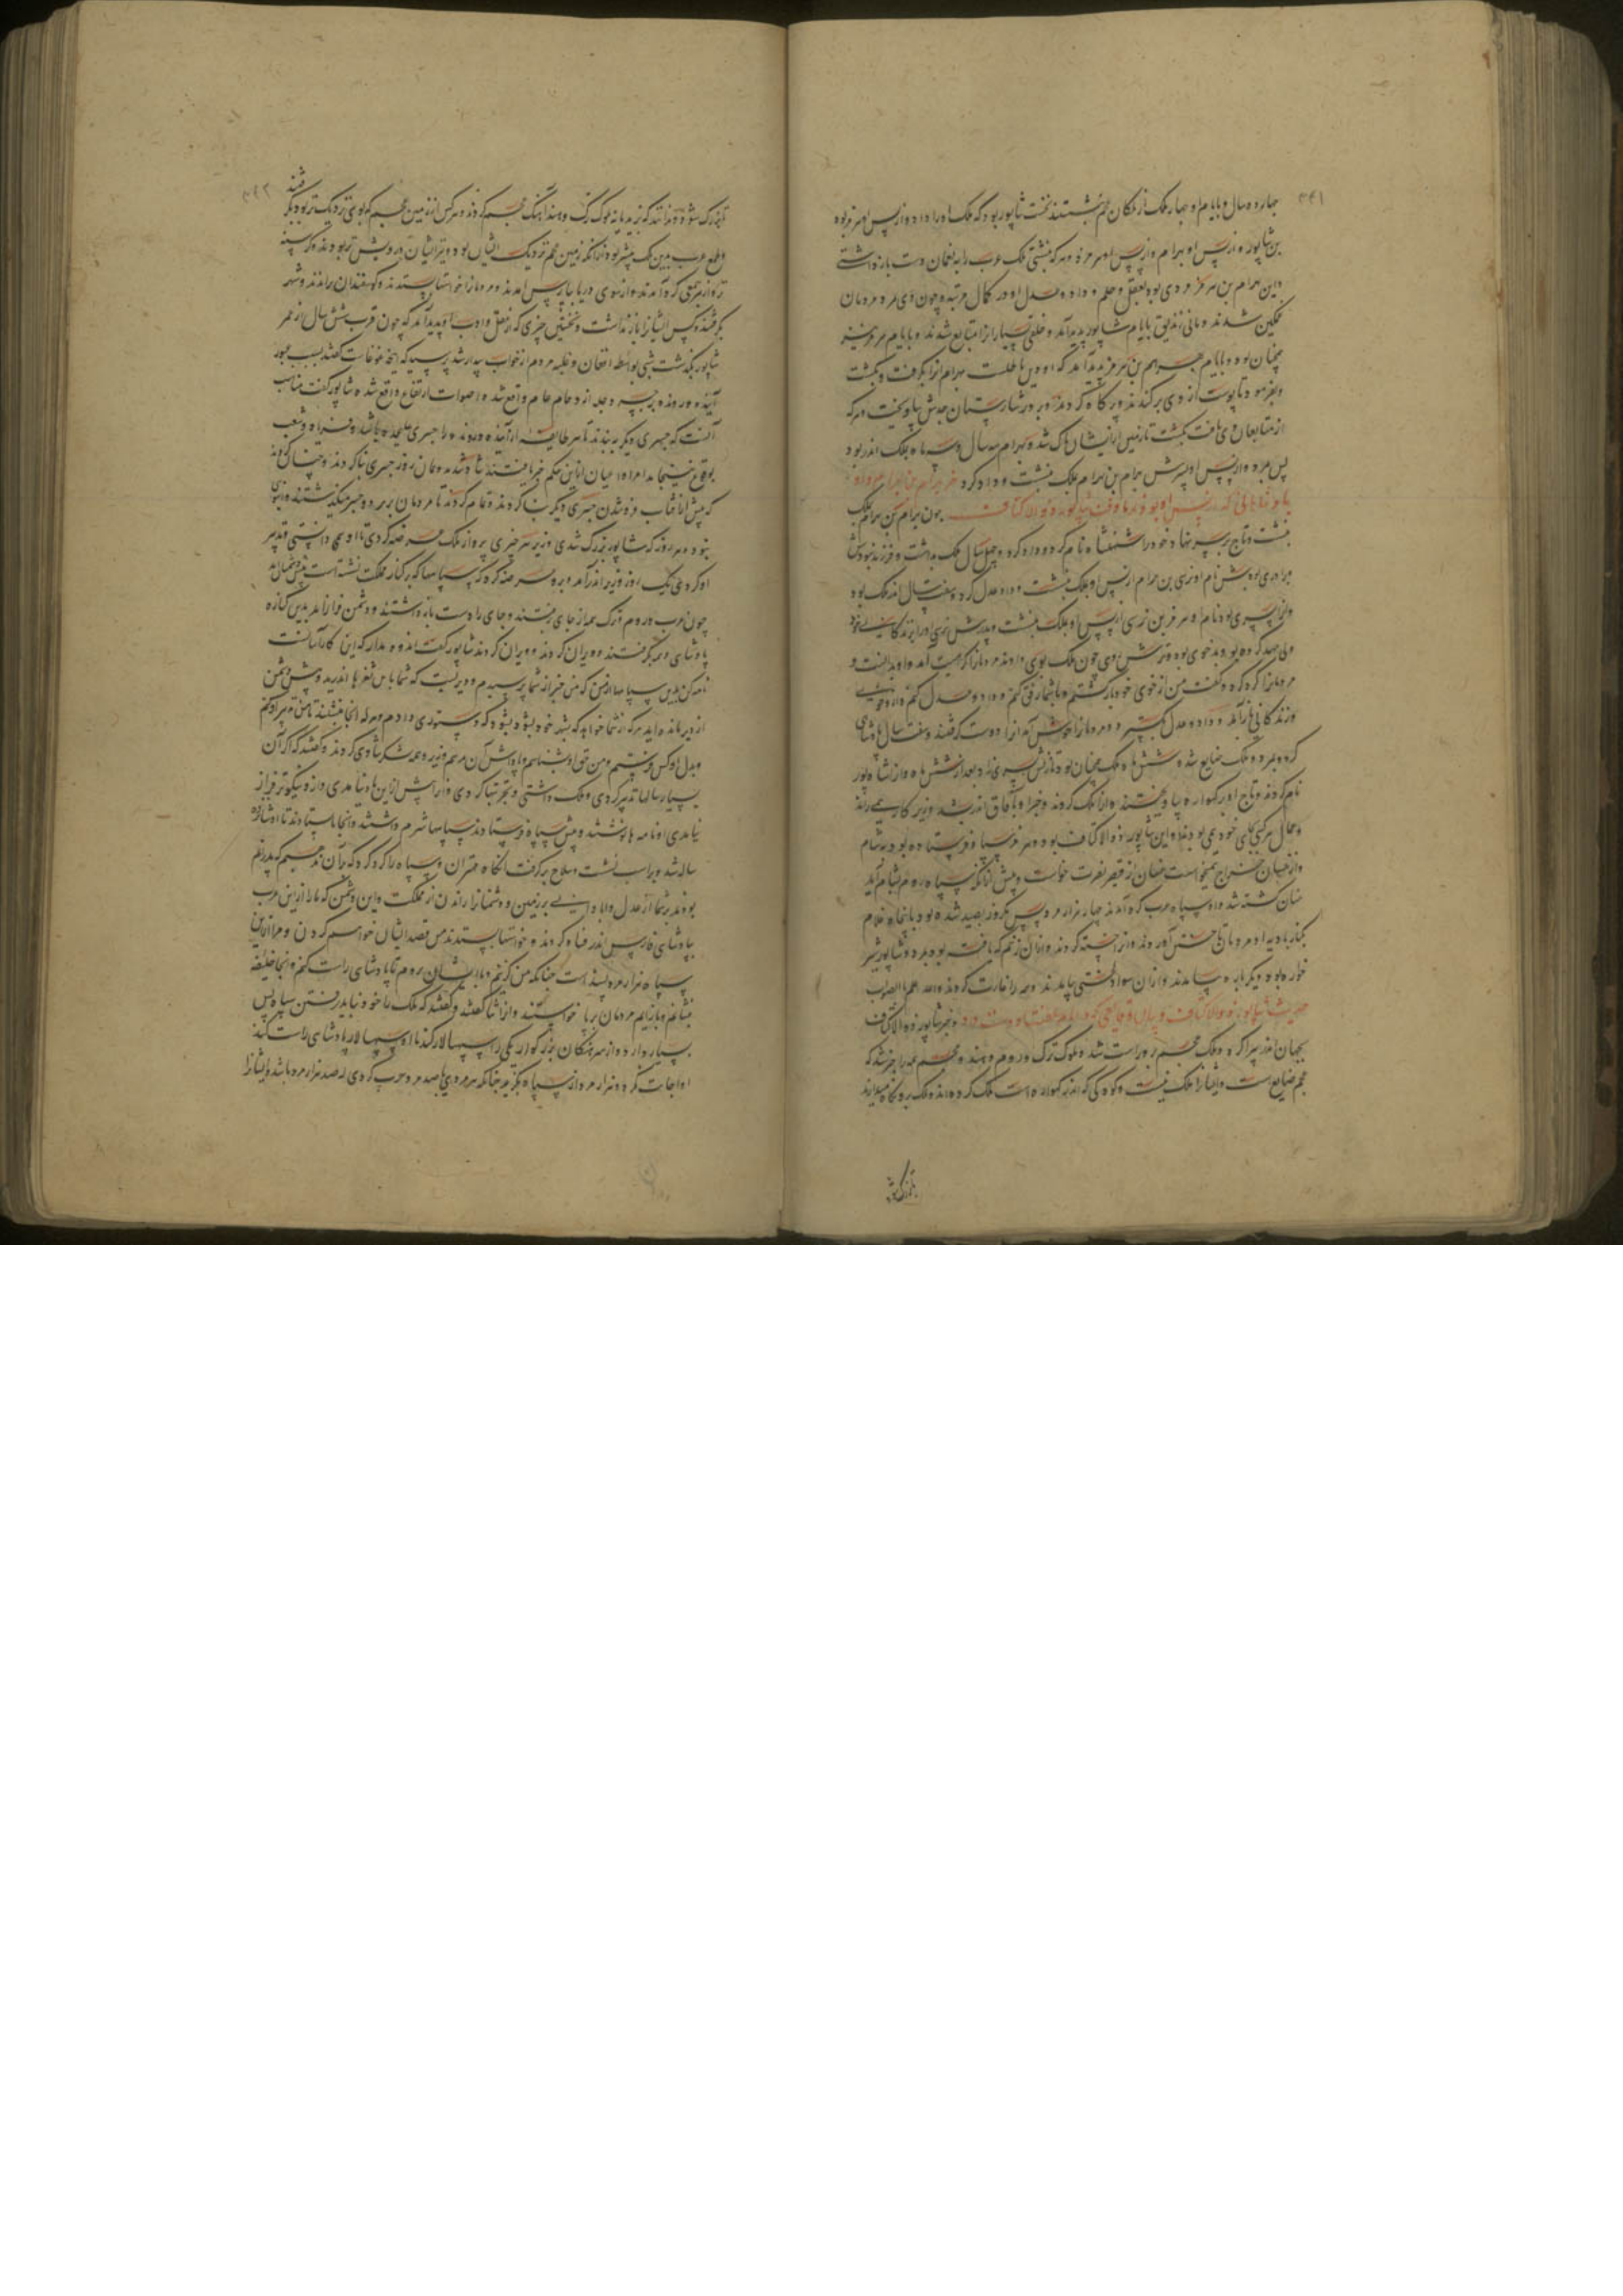 ۳۴۱
چهارده سال و بایام او چهار ملک از ملکان عجم بنشستند نخست شاپور بود که ملک اورا داد و از پس او هرمز بود
بن شاپور و از پس او بهرام و از پس او هرمز و هر که بنشستی ملک عرب را به نعمان دست بازداشتی
و این بهرام بن هرمز مردی بود بعقل و حلم و داد و عدل او در کمال مرتبه و چون وی مرد مردمان
غمگین شدند و مانی زندیق بایام شاپور پدید آمد و خلقی بسیار او را متابع شدند و بایام هرمز نیز
همچنان بود و بایام بهرام بن هرمز پدید آمد که او دین باطلست بهرام او را بگرفت و بکشت
و بفرمود تا پوست از وی برکندند و پر کاه کردند و بر در شارستان جندیشاپور بیاویخت و هر که
از متابعان وی یافت بکشت تا زمین از ایشان پاک شد و بهرام سه سال و سه ماه بملک اندر بود
پس بمرد و از پس او پسرش بهرام بن بهرام بملک بنشست و داد کرد خبر بهرام بن بهرام و
پادشاهانی که از پس او بودند تا وقت شاپور ذو الاکتاف چون بهرام بن بهرام بملک
بنشست و تاج بر سر نهاد و خود را شهنشاه نام کرد و داد کرد و چهل سال ملک بداشت و فرزند نبودش
برادری بودش نام او نرسی بن بهرام از پس او بملک بنشست و داد و عدل کرد و هفت سال اندر ملک بود
و او را پسری بود نام او هرمز بن نرسی از پس او بملک بنشست و پدرش نرسی او را بزندگانی خود
ولی عهد کرده بود و بدخوی بود و ترش روی چون ملک بوی دادند مردمان را کراهیت آمد و او بدانست و
مردمان را گرد کرد و گفت من از خوی خود بازگشتم و با شما رفق کنم و داد و عدل کنم و از
و زندگانی باز آمد و داد و عدل بگسترد و مردمان را خوش آمد او را دوست گرفتند و هفت سال پادشاهی
کرد و بمرد و ملک ضایع شد و شش ماه ملک همچنان بود تا زنش پسری زاد بعد از شش ماه و او را شاپور
نام کردند و تاج او بر گهواره بیاویختند و او را ملک کردند و خبر او بآفاق اندر شد و وزیر کار همی راند
و عمال هر کسی بجای خود همی بودند و این شاپور ذو الاکتاف بود و هرمز سپاه فرستاده بود به شام
و از غسان خراج همیخواست غسان از قیصر نصرت خواست و پیش از آنکه سپاه روم بشام آید
غسان کشته شد و او سپاه عرب گرد آمدند چهار هزار مرد و پس هرمز بصید شده بود با پنجاه غلام
بکنار بادیه او مردمان تاختن آوردند و او را خسته کردند و از آن زخم که یافت بود بمرد و شاپور شیر
خواره بود دیگر باره بیامدند و از آن سو از کشتی بیامدند و همه را غارت کردند والله اعلم بالصواب
حدیث شاپور ذو الاکتاف و بیان وقایعی که در ایام سلطنت او دست داد و خبر شاپور ذو الاکتاف
بجهان اندر پراکنده و ملک عجم بر وی راست شد و ملوک ترک و روم و هند و عجم همه را خبر شد که
عجم ضایع است و ایشان را ملک نیست و کودکی که اندر گهواره است ملک کرده‌اند و ملک بر وی نگاه میدارند
تا بزرگ شود
۳۴۲
تا بزرگ شود و ندانند که بزید یا نه ملوک ترک و هند آهنگ عجم کردند و هر کس از زمین عجم که بوی نزدیک تر بود بگرفتند
و طمع عرب بدین ملک بیشتر بود از آنکه زمین عجم نزدیک ایشان بود و نیز ایشان درویش تر بودند و گرسنه
تر و از هر جمعی گرد آمدند و از سوی دریا بپارس آمدند و مردمان را خواستها بستدند و گوسفندان براندند و شهر
بگرفتند و کس ایشان را بازنداشت و نخستین چیزی که از عقل و ادب او پدید آمد که چون قرب شش سال از عمر
شاپور بگذشت شبی بواسطه افغان و غلبه مردم از خواب بیدار شد پرسید که این چه غوغاست گفتند بسبب عبور
آینده و رونده بر جسر دجله ازدحام عام واقع شد و اصوات ارتفاع واقع شد شاپور گفت مناسب
آنست که جسری دیگر ببندند تا هر طایفه از آینده و رونده را جسری علیحده باشد و فریاد و شغب
بوقوع نینجامد امرا و اعیان ازین حکم خرم گشتند شاد شدند و همان روز جسری بنا کردند و چنان کردند
که پیش از آفتاب فرو شدن جسری دیگر بنا کردند و تمام کردند تا مردمان بر هر دو جسر میگذشتند و انبوهی
نبود و هر روز که شاپور بزرگ شدی وزیر هر چیزی بر وی از ملک عرضه کردی تا او همی دانستی و تدبیر
او کردی یک روز وزیر اندر آمد و برو عرضه کرد که سپاهها که بر کنار مملکت نشسته است پیش دشمنان اند
چون عرب و روم و ترک همه از جای برفتند و جای را دست بازداشتند و دشمن فراز آمد بدین کناره
پادشاهی و بگرفتند و ویران کردند شاپور گفت اندوه مدار که این کار آسانست
نامه کن بدین سپاهها از من که من خبر از شما پرسیدم و دیریست که شما بدین ثغرها اندرید و پیش دشمن
اند دیر مانده اید هر که از شما خواهد که بشهر خود بشود بشود که دستوری دادم و هر که آنجا بنشیند تا من تدبیر او کنم
و بدل او کس فرستم و من حق او بشناسم و پاداش آن بدهم وزیر و همه لشکر شادی کردند و گفتند که اگر آن
بسیار سالها تدبیر کردی و ملک داشتی و تجربتها کردی ورایش ازین بهتر نیامدی و ازو نیکوتر فراز
نیامدی و نامه ها نوشتند و پیش سپاه فرستادند سپاهها شرم داشتند و آنجا بایستادند تا او شانزده
ساله شد و بر اسب نشست و سلاح برگرفت آنگاه مهتران و سپاه را گرد کرد که من بر آن مذهبم که پدرانم
بودند بر شما از عدل و آبادانی زمین و دشمنان را راندن از مملکت و این دشمن که ما را ازین عرب
بپادشاهی فارس اندر فساد کردند و خواستها بستدند من قصد ایشان خواهم کردن و مرا از این
سپاه هزار مرد بسنده است چنانکه من گزینم و با ایشان بروم تا پادشاهی راست کنم و آنجا خلیفه
بنشانم و بازآیم مردمان برپا خواستند و او را ثنا گفتند و گفتند که ملک را خود نباید رفتن سپاه بس
بسیار دارد و از سرهنگان بزرگوار یکی را سپهسالار کند تا او سپهسالار پادشاهی راست کند
او اجابت نکرد و هزار مرد از سپاه بگزید چنانکه هر مردی با صد مرد حرب کردی که صد هزار مرد باشد و ایشان را